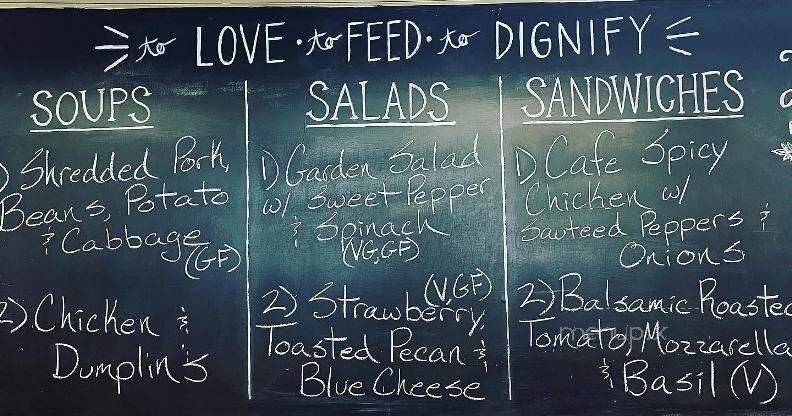 to LOVE · to FEED · to DIGNIFY
SOUPS
1) Shredded Pork,
Beans, Potato
& Cabbage
(GF)
2) Chicken &
Dumplin's
SALADS
1) Garden Salad
w/ Sweet Pepper
& Spinach
(VG,GF)
(V,GF)
2) Strawberry,
Toasted Pecan &
Blue Cheese
SANDWICHES
1) Cafe Spicy
Chicken w/
Sauteed Peppers &
Onions
2) Balsamic Roasted
Tomato, Mozzarella
& Basil (V)